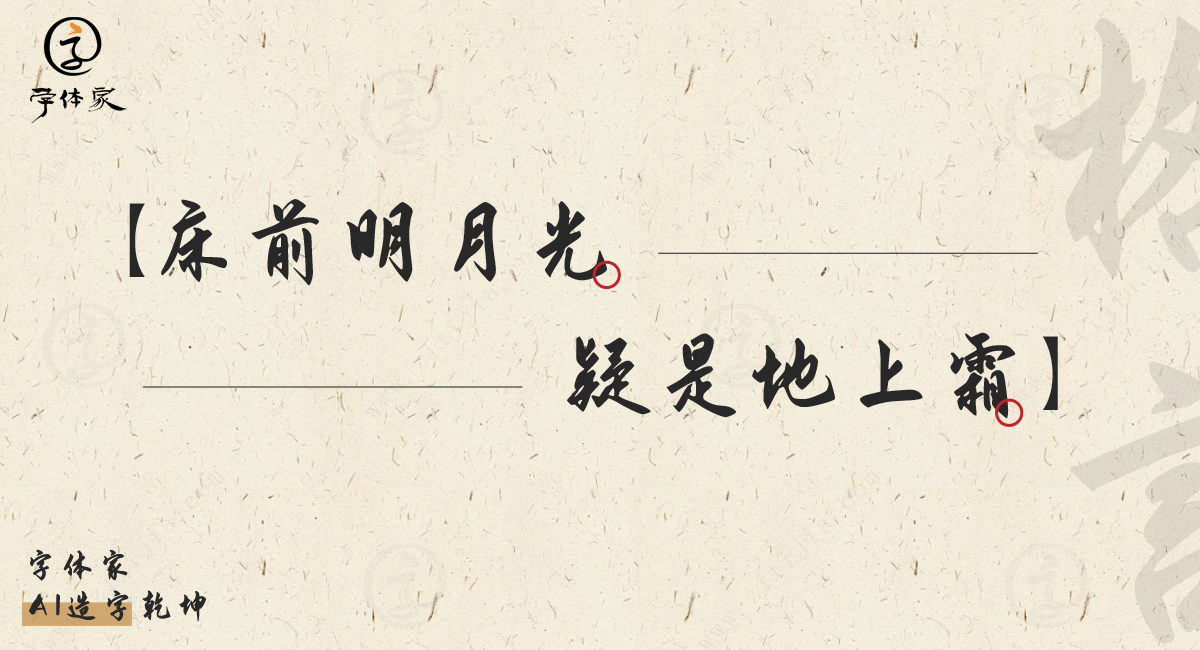 字体家
【床前明月光。
疑是地上霜。】
字体家
AI造字乾坤
格言